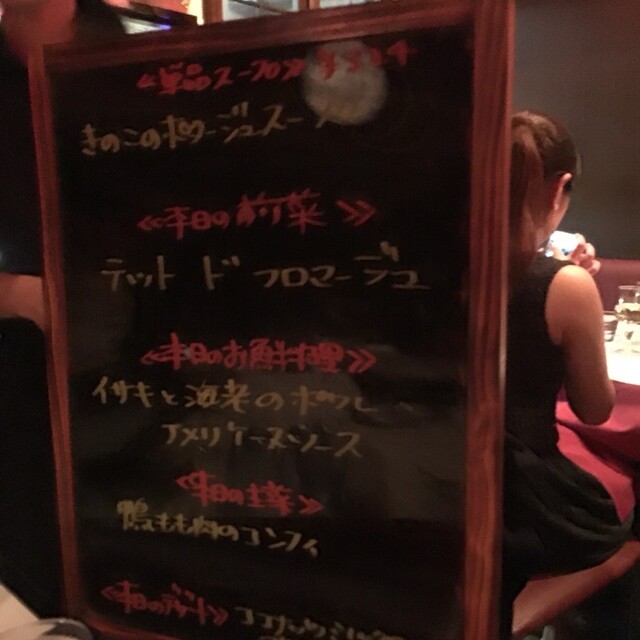 きのこのポタージュスープ
≪本日の前菜≫
テット ド フロマージュ
≪本日のお魚料理≫
イサキと海老のポワレ
アメリケーヌソース
≪本日の主菜≫
鴨もも肉のコンフィ
≪本日のデザート≫